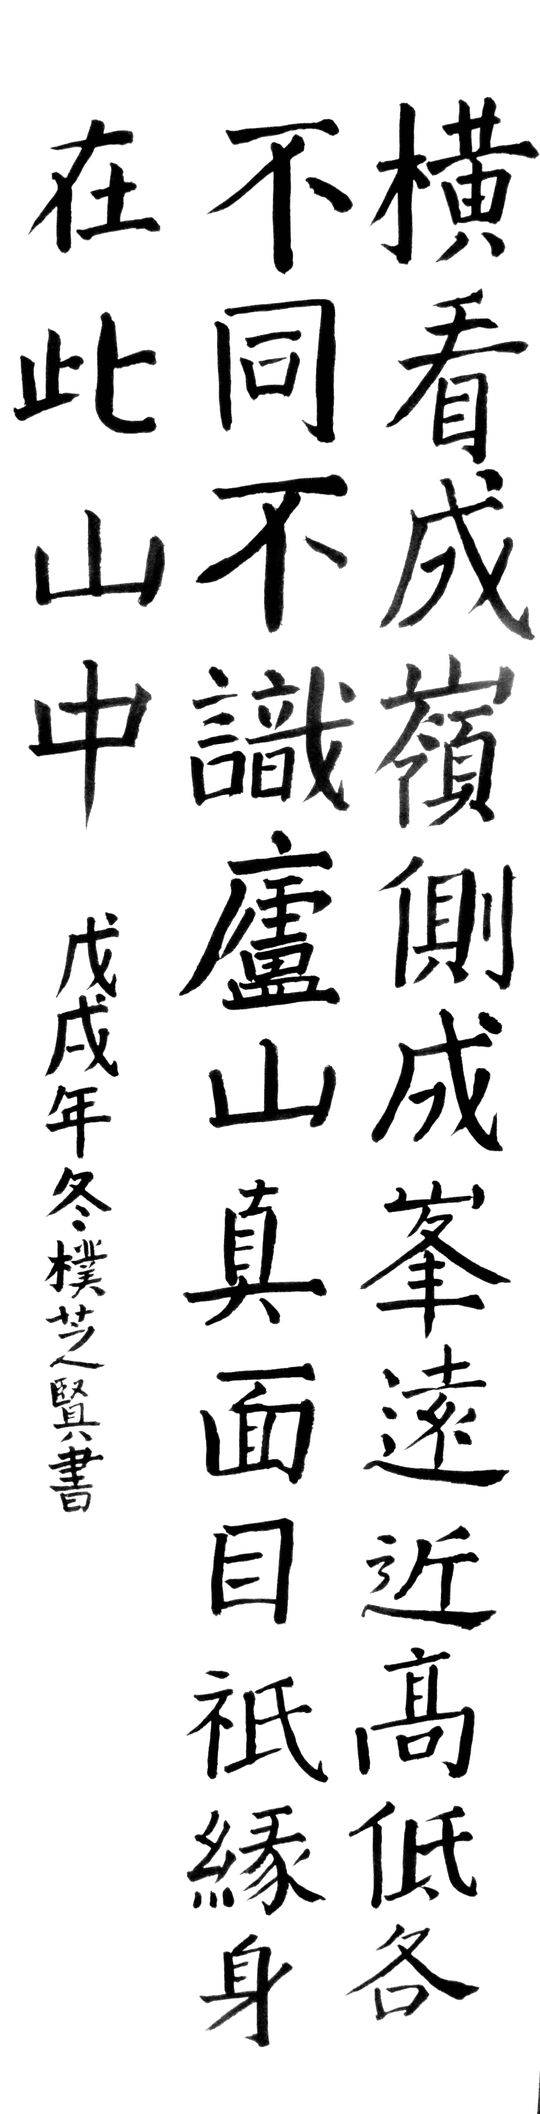 橫看成嶺側成峯遠近高低各
不同不識廬山真面目祇緣身
在此山中
戊戌年冬樸芝賢書